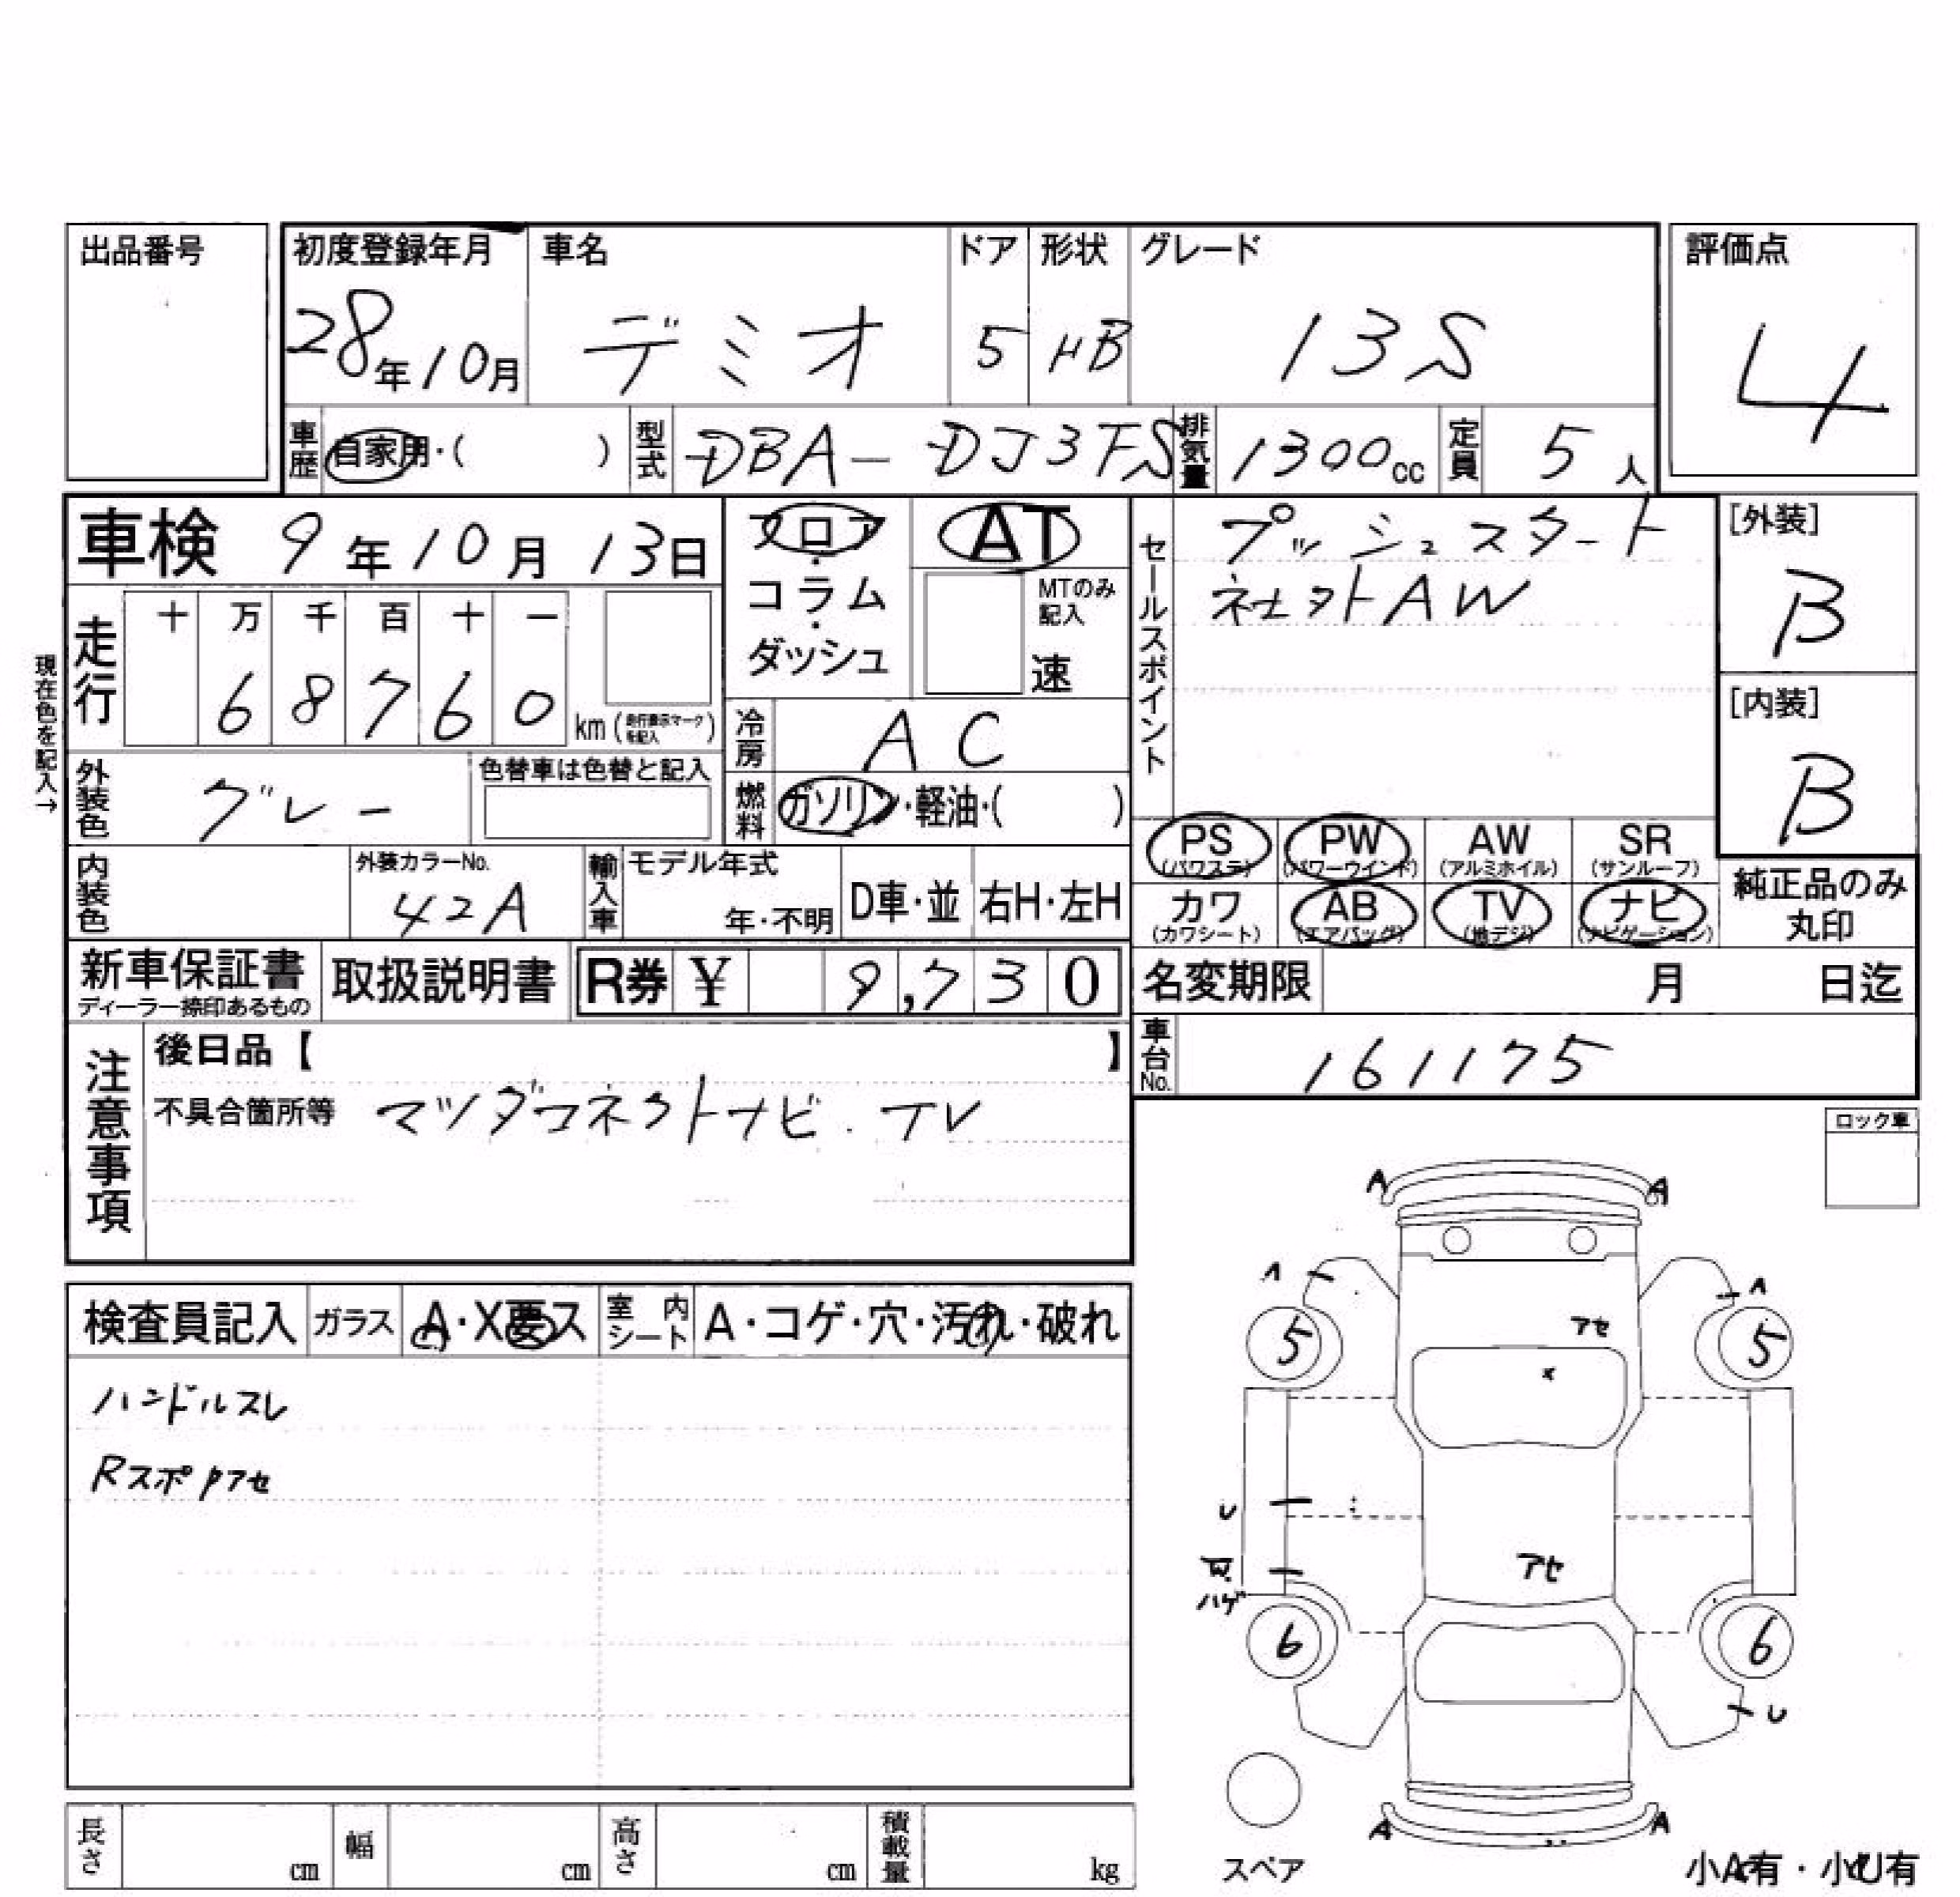 出品番号
初度登録年月 車名 ドア 形状 グレード 評価点
28年10月 デミオ 5 HB 13S 4
車歴 自家用・( ) 型式 DBA-DJ3FS 排気量 1300cc 定員 5人
車検 9年10月13日
フロア・コラム・ダッシュ
AT
MTのみ記入
速
セールスポイント
プッシュスタート
社外AW
[外装]
B
[内装]
B
現在色を記入→
走行 十 万 千 百 十 一
6 8 7 6 0 km(走行表示マークを記入)
冷房 AC
外装色 グレー 色替車は色替と記入
燃料 ガソリン・軽油・( )
PS (パワステ) PW (パワーウインド) AW (アルミホイル) SR (サンルーフ)
カワ (カワシート) AB (エアバッグ) TV (地デジ) ナビ (ナビゲーション)
純正品のみ丸印
内装色 外装カラーNo. 42A 輸入車 モデル年式 年・不明 D車・並 右H・左H
新車保証書 ディーラー捺印あるもの 取扱説明書 R券 ¥ 9,730
名変期限 月 日迄
車台No. 161175
注意事項
後日品【 】
不具合箇所等 マツダコネクトナビ. TV
ロック車
検査員記入 ガラス A・X要ス 室内シート A・コゲ・穴・汚れ・破れ
ハンドルスレ
Rスポアセ
A A
A A
アセ
5 5
x
U
アセ
ハゲ
6 6
U
A A
スペア
小A有・小U有
長さ cm 幅 cm 高さ cm 積載量 kg